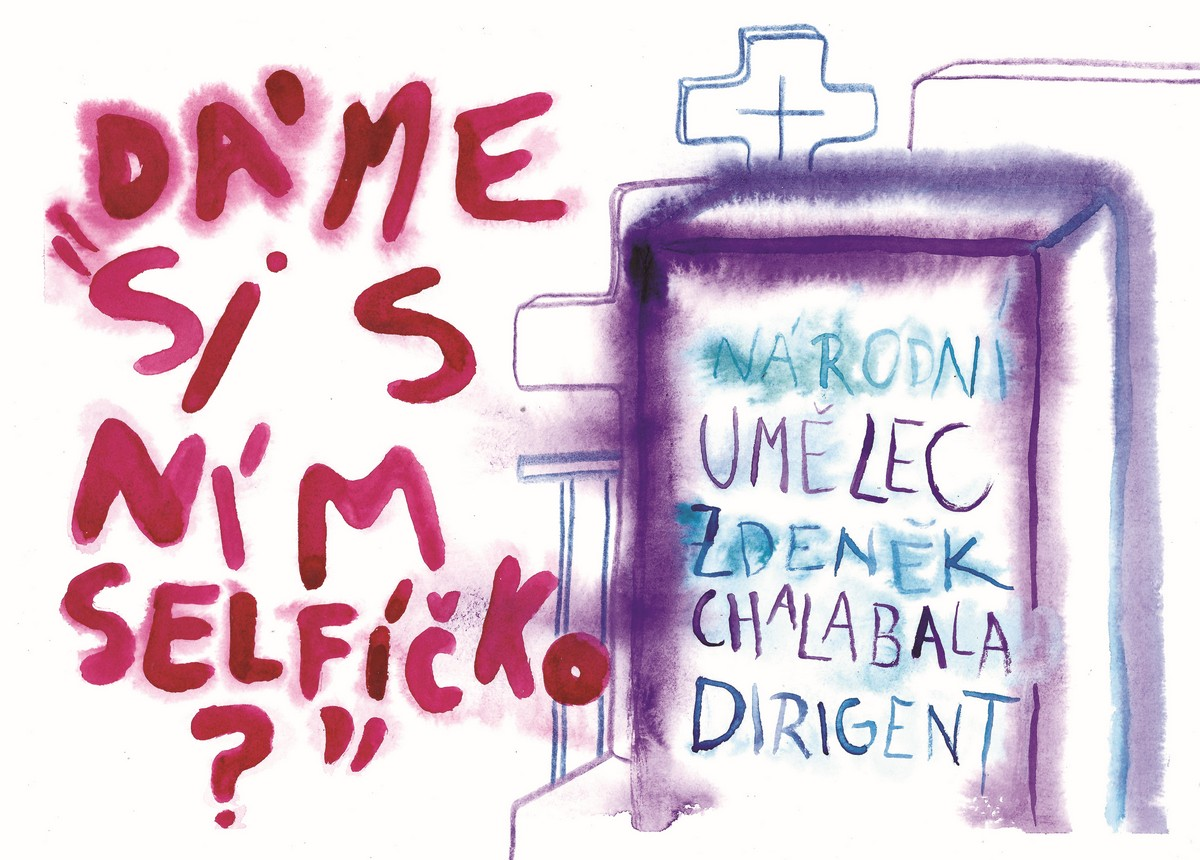 DÁME
"SI S
NÍM
SELFÍČKO
?"
NÁRODNÍ
UMĚLEC
ZDENĚK
CHALABALA
DIRIGENT